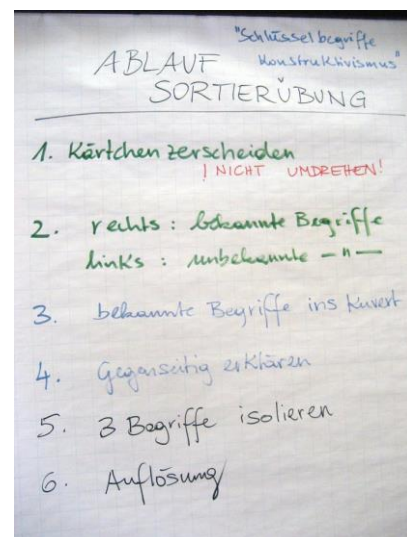 "Schlüsselbegriffe
Konstruktivismus"
ABLAUF
SORTIERÜBUNG
1. Kärtchen zerscheiden
! NICHT UMDREHEN!
2. rechts : bekannte Begriffe
links : unbekannte – " –
3. bekannte Begriffe ins Kuvert
4. Gegenseitig erklären
5. 3 Begriffe isolieren
6. Auflösung